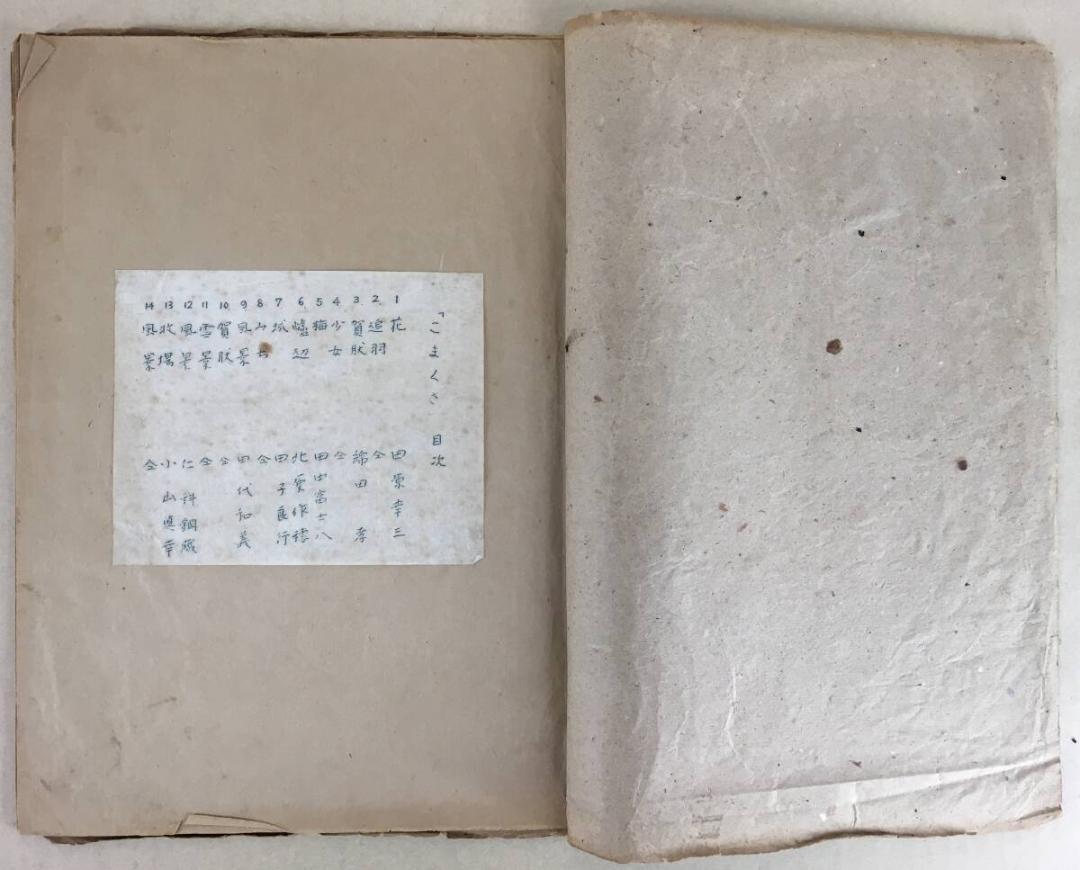 「こまくさ 目次
1 花 田原幸三
2 追羽 仝
3 賀状 濤田 孝
4 少女 仝
5 梅 田中富士八
6 爐辺 北原作穂
7 城 田子良行
8 仝
9 風景 田代和美
10 賀状 仝
11 雪景 仝
12 風景 仁科鋼蔵
13 牧場 小山真幸
14 風景 仝